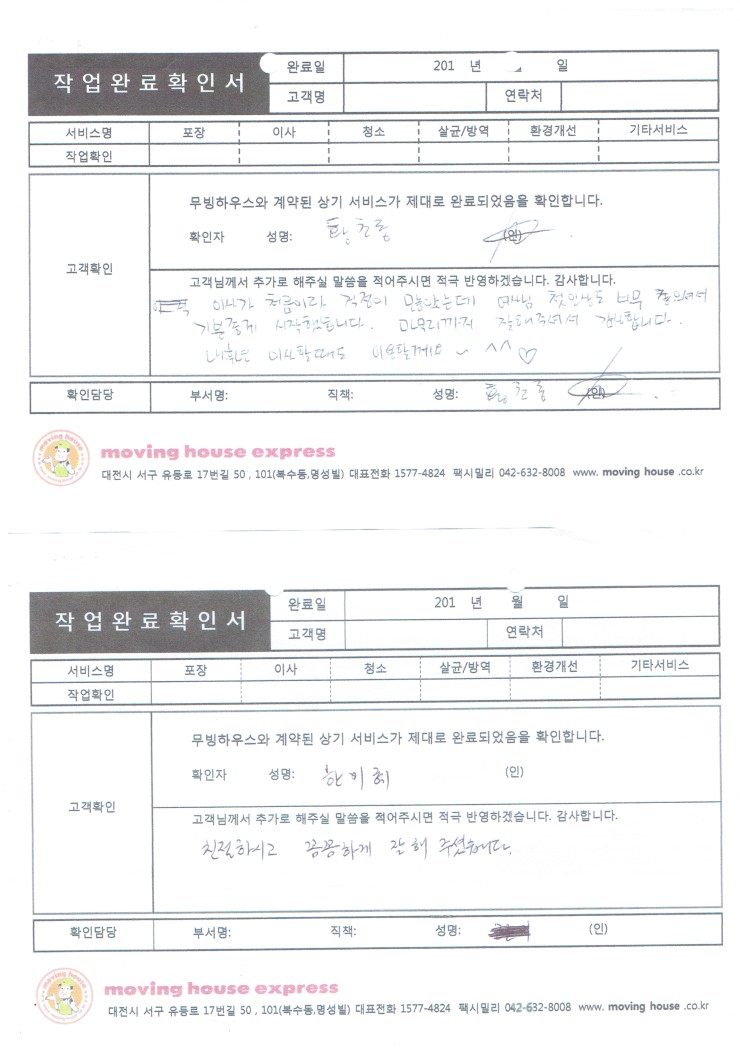 작업완료확인서
완료일 201 년 일
고객명 연락처
서비스명 포장 이사 청소 살균/방역 환경개선 기타서비스
작업확인
고객확인
무빙하우스와 계약된 상기 서비스가 제대로 완료되었음을 확인합니다.
확인자 성명: (인)
고객님께서 추가로 해주실 말씀을 적어주시면 적극 반영하겠습니다. 감사합니다.
이사가 처음이라 걱정이 많았는데 첫인상도 너무 좋으셔서
기분좋게 시작했습니다. 마무리까지 잘해주셔서 감사합니다.
내후년 이사할때도 이용할게요 ~ ^^ ♡
확인담당 부서명: 직책: 성명: (인)
moving house
moving house express
대전시 서구 유등로 17번길 50 , 101(복수동,명성빌) 대표전화 1577-4824 팩시밀리 042-632-8008 www. moving house .co.kr
작업완료확인서
완료일 201 년 월 일
고객명 연락처
서비스명 포장 이사 청소 살균/방역 환경개선 기타서비스
작업확인
고객확인
무빙하우스와 계약된 상기 서비스가 제대로 완료되었음을 확인합니다.
확인자 성명: 한미희 (인)
고객님께서 추가로 해주실 말씀을 적어주시면 적극 반영하겠습니다. 감사합니다.
친절하시고 꼼꼼하게 잘 해 주셨습니다.
확인담당 부서명: 직책: 성명: (인)
moving house
moving house express
대전시 서구 유등로 17번길 50 , 101(복수동,명성빌) 대표전화 1577-4824 팩시밀리 042-632-8008 www. moving house .co.kr